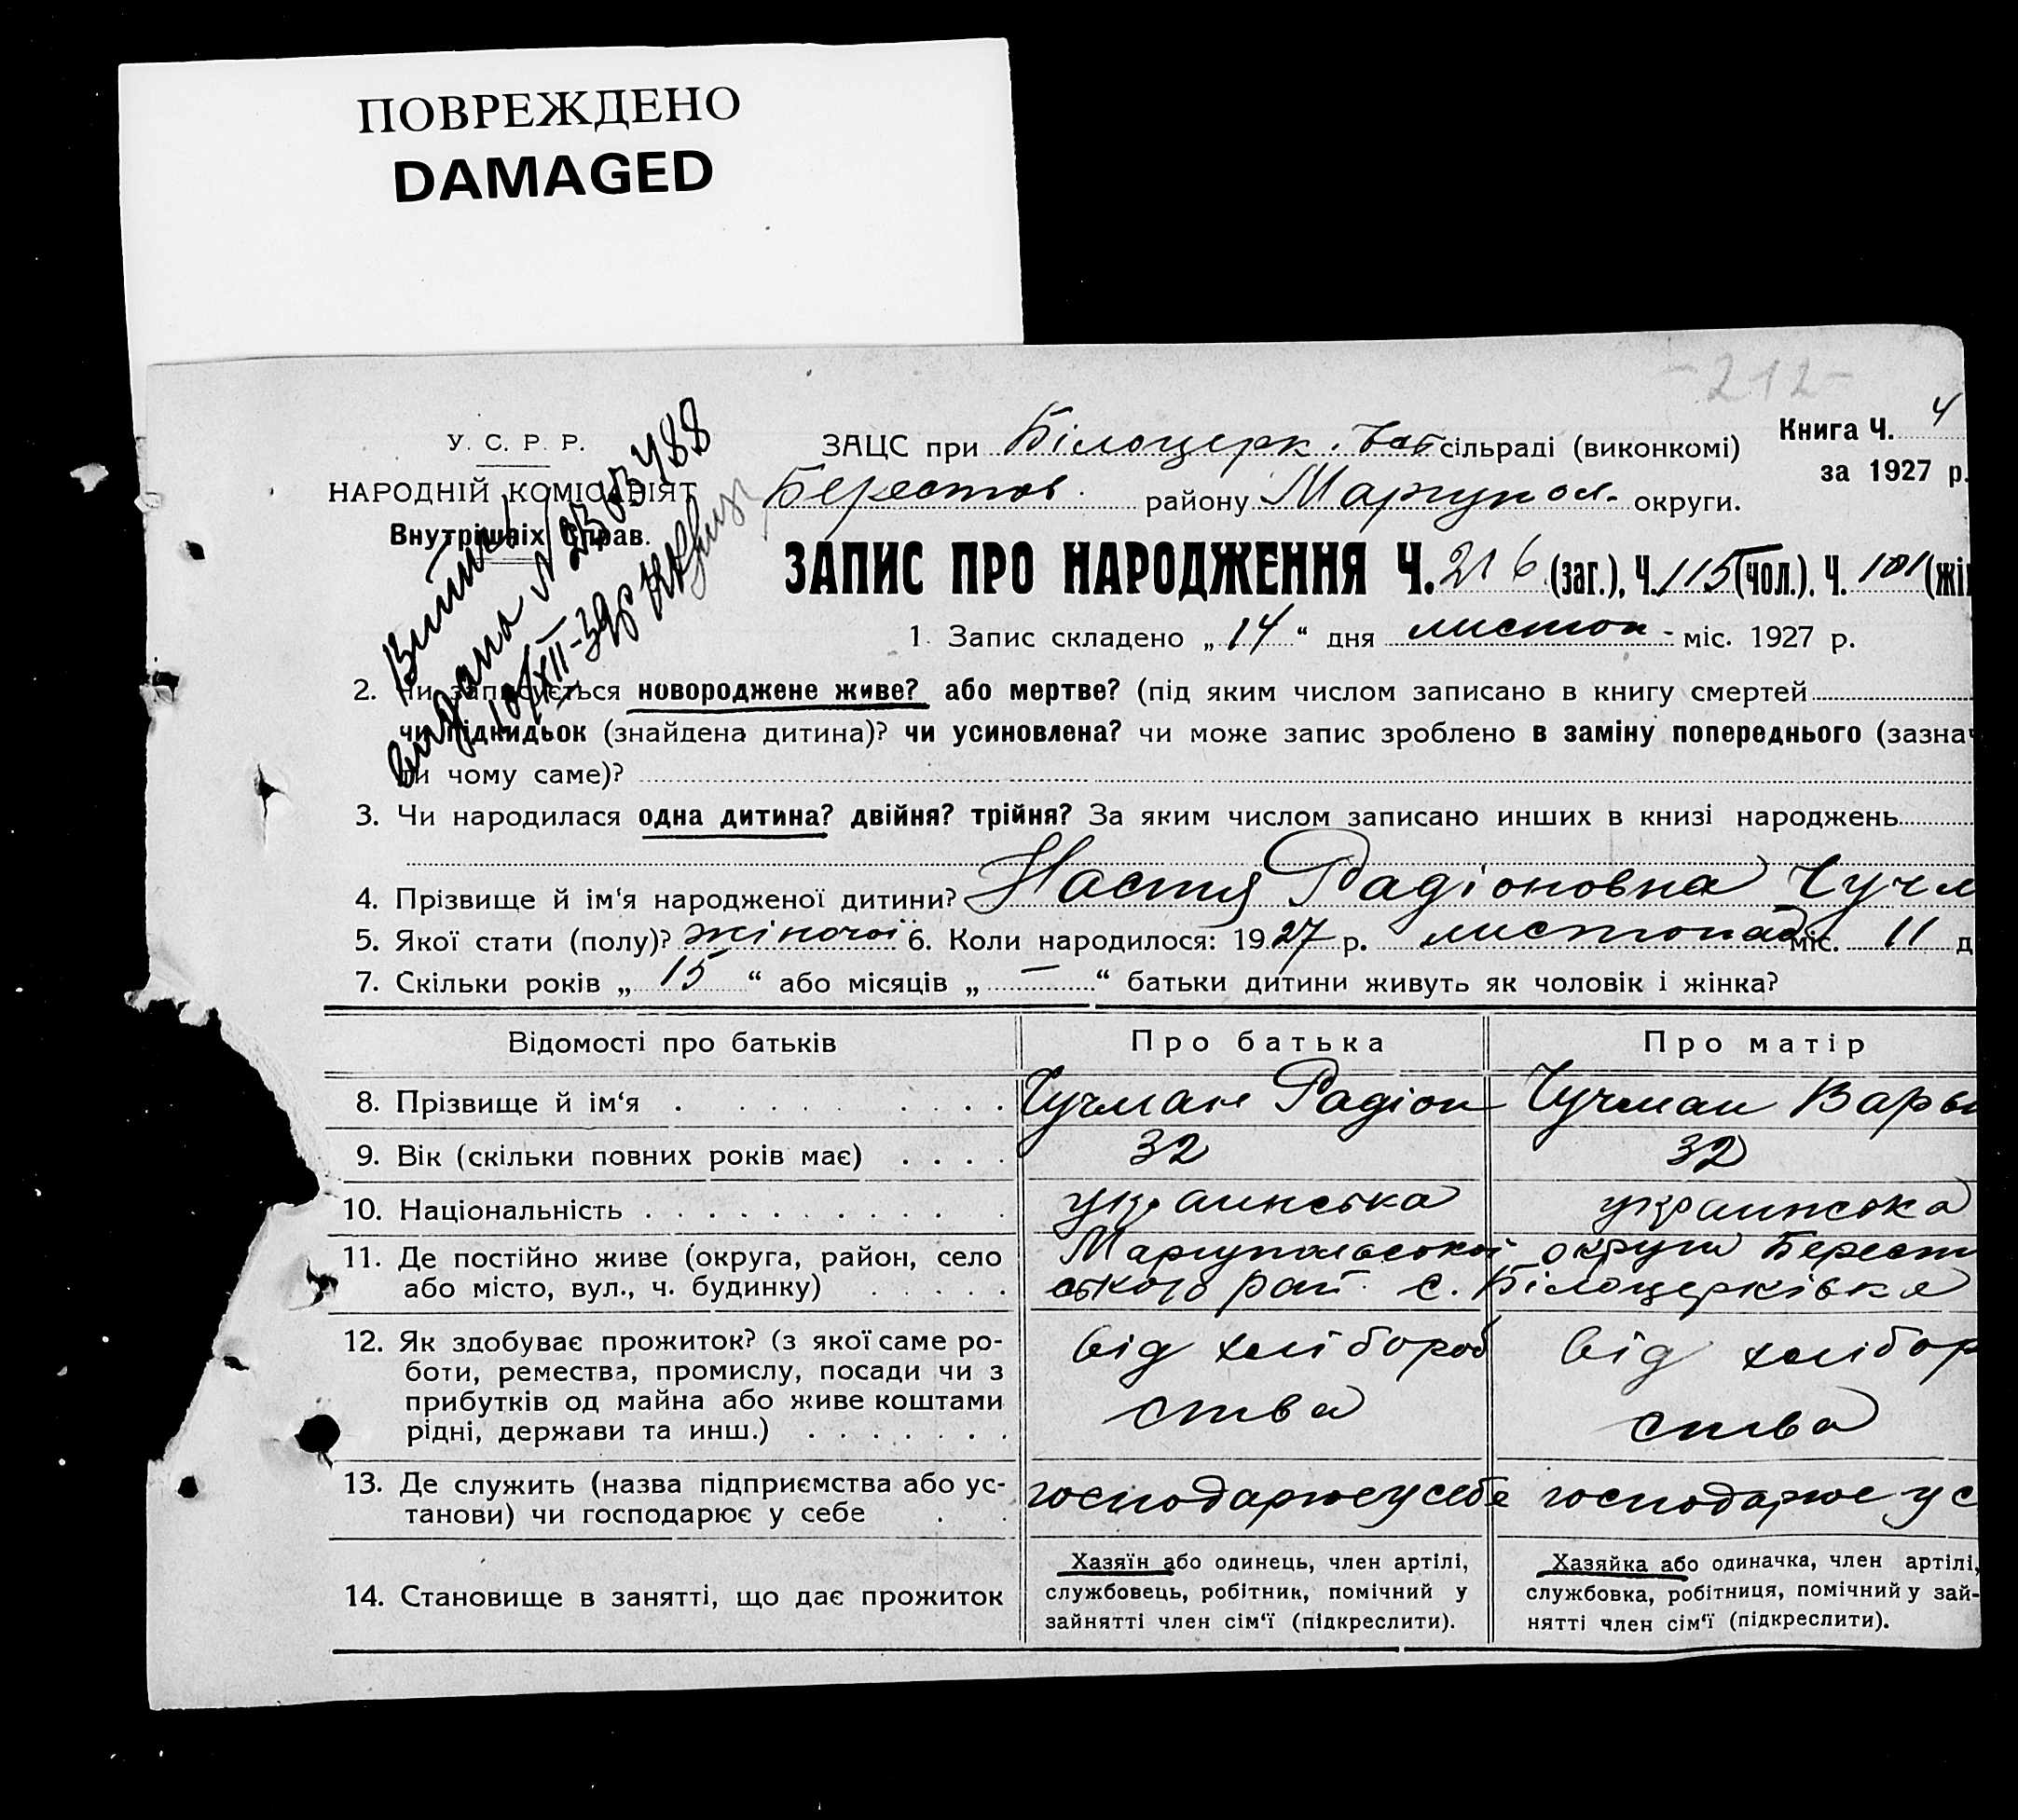 ПОВРЕЖДЕНО
DAMAGED
-212-
У. С. Р. Р.
НАРОДНІЙ КОМІСАРІЯТ
Внутрішніх Справ.
ЗАЦС при Білоцерк. сільраді (виконкомі)
Книга Ч. 4
за 1927 р.
Берестов. району Маріупол. округи.
ЗАПИС ПРО НАРОДЖЕННЯ Ч. 216 (заг.), Ч. 115 (чол.). Ч. 101 (жі
видана N
10/XII-39р
1. Запис складено „ 14 “ дня листоп - міс. 1927 р.
2. Чи записується новороджене живе? або мертве? (під яким числом записано в книгу смертей
чи підкидьок (знайдена дитина)? чи усиновлена? чи може запис зроблено в заміну попереднього (зазнач
ти чому саме)?
3. Чи народилася одна дитина? двійня? трійня? За яким числом записано инших в книзі народжень
4. Прізвище й ім‘я народженої дитини? Настя Радіоновна Чучм
5. Якої стати (полу)? жіночої 6. Коли народилося: 1927 р. листопад міс. 11 д
7. Скільки років „ 15 “ або місяців „ — “ батьки дитини живуть як чоловік і жінка?
Відомості про батьків
Про батька
Про матір
8. Прізвище й ім‘я
Чучман Радіон
Чучман Варв
9. Вік (скільки повних років має)
32
32
10. Національність
украинська
украинська
11. Де постійно живе (округа, район, село
або місто, вул., ч. будинку)
Маріупольської округи Берест
ського рай. с. Білоцерківка
12. Як здобуває прожиток? (з якої саме ро-
боти, ремества, промислу, посади чи з
прибутків од майна або живе коштами
рідні, держави та инш.)
від хлібороб
ства
від хлібор
ства
13. Де служить (назва підприємства або ус-
танови) чи господарює у себе
господарюе у себе
господарюе у с
14. Становище в занятті, що дає прожиток
Хазяїн або одинець, член артілі,
службовець, робітник, помічний у
зайнятті член сім‘ї (підкреслити).
Хазяйка або одиначка, член артілі,
службовка, робітниця, помічний у зай-
нятті член сім‘ї (підкреслити).